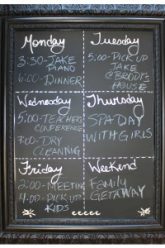 Monday
3:30-JAKE
PIANO
6:00-DINNER
Tuesday
5:00-PICK UP
JAKE
@BRODY'S
HOUSE
Wednesday
5:00-TEACHERS
CONFERENCE
DRY
CLEANING
Thursday
SPA DAY
WITH GIRLS
Friday
2:00-MEETING
4:00-PICK UP
KIDS
Weekend
FAMILY
GETAWAY